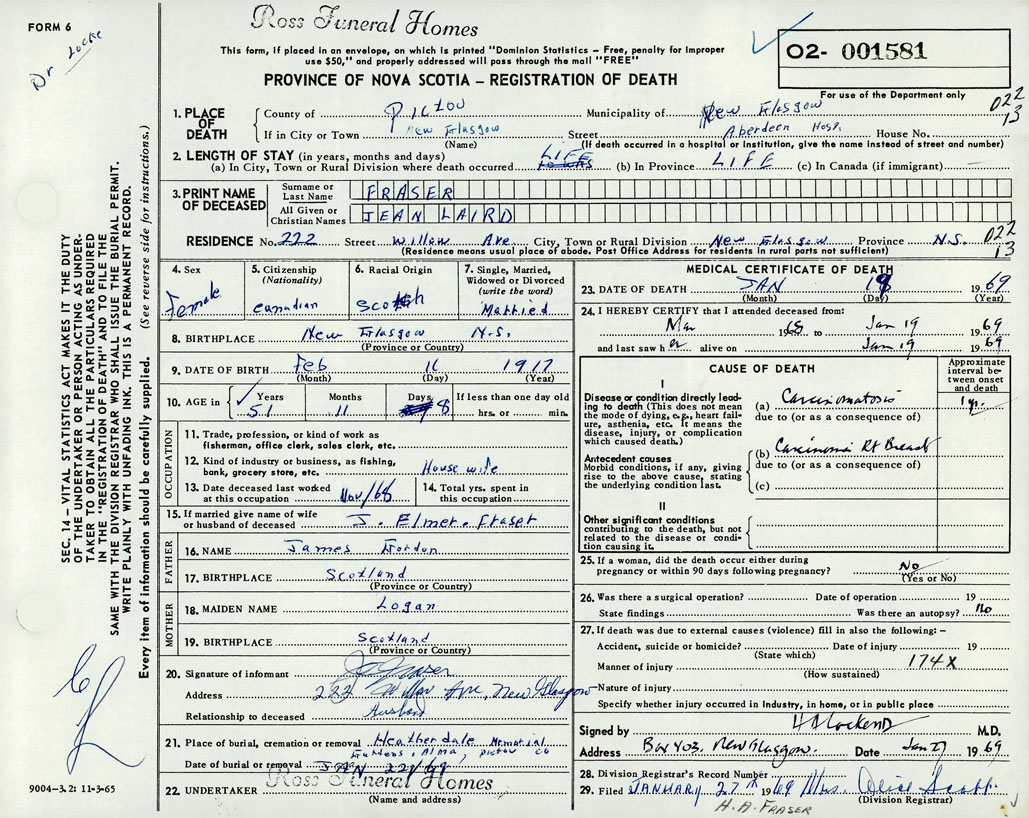 FORM 6
Dr Locke
Ross Funeral Homes
This form, if placed in an envelope, on which is printed "Dominion Statistics – Free, penalty for improper
use $50," and properly addressed will pass through the mail "FREE"
PROVINCE OF NOVA SCOTIA – REGISTRATION OF DEATH
02- 001581
For use of the Department only
022
13
1. PLACE OF DEATH
County of Pictou Municipality of New Glasgow
If in City or Town New Glasgow Street Aberdeen Hosp. House No.
(Name) (If death occurred in a hospital or institution, give the name instead of street and number)
2. LENGTH OF STAY (in years, months and days)
(a) In City, Town or Rural Division where death occurred LIFE (b) In Province LIFE (c) In Canada (if immigrant)
3. PRINT NAME OF DECEASED
Surname or Last Name FRASER
All Given or Christian Names JEAN LAIRD
RESIDENCE No. 222 Street Willow Ave City, Town or Rural Division New Glasgow Province N.S.
(Residence means usual place of abode. Post Office Address for residents in rural parts not sufficient)
022
13
4. Sex Female
5. Citizenship (Nationality) Canadian
6. Racial Origin Scotch
7. Single, Married, Widowed or Divorced (write the word) Married
8. BIRTHPLACE New Glasgow N.S.
(Province or Country)
9. DATE OF BIRTH Feb 11 1917
(Month) (Day) (Year)
10. AGE in Years 51 Months 11 Days 8 If less than one day old hrs. or min.
OCCUPATION
11. Trade, profession, or kind of work as
fisherman, office clerk, sales clerk, etc.
12. Kind of industry or business, as fishing,
bank, grocery store, etc. House wife
13. Date deceased last worked at this occupation Nov/68
14. Total yrs. spent in this occupation
15. If married give name of wife
or husband of deceased J. Elmer Fraser
FATHER
16. NAME James Gordon
17. BIRTHPLACE Scotland
(Province or Country)
MOTHER
18. MAIDEN NAME Logan
19. BIRTHPLACE Scotland
(Province or Country)
20. Signature of informant Fraser
Address 222 Willow Ave, New Glasgow
Relationship to deceased Husband
21. Place of burial, cremation or removal Heatherdale Memorial
Gardens, Alma, Pictou Co
Date of burial or removal JAN 22/69
22. UNDERTAKER Ross Funeral Homes
(Name and address)
MEDICAL CERTIFICATE OF DEATH
23. DATE OF DEATH JAN 19 1969
(Month) (Day) (Year)
24. I HEREBY CERTIFY that I attended deceased from:
Mar 1968 to Jan 19 1969
and last saw her alive on Jan 19 1969
CAUSE OF DEATH
Approximate interval between onset and death
I
Disease or condition directly leading
to death (This does not mean
the mode of dying, e.g., heart failure,
asthenia, etc. It means the
disease, injury, or complication
which caused death.)
(a) Carcinomatosis 1 yr.
due to (or as a consequence of)
Antecedent causes
Morbid conditions, if any, giving
rise to the above cause, stating
the underlying condition last.
(b) Carcinoma Rt Breast
due to (or as a consequence of)
(c)
II
Other significant conditions
contributing to the death, but not
related to the disease or condition
causing it.
25. If a woman, did the death occur either during
pregnancy or within 90 days following pregnancy? No
(Yes or No)
26. Was there a surgical operation? Date of operation 19
State findings Was there an autopsy? No
27. If death was due to external causes (violence) fill in also the following: –
Accident, suicide or homicide? Date of injury 19
(State which)
Manner of injury 174X
(How sustained)
Nature of injury
Specify whether injury occurred in industry, in home, or in public place
Signed by M.D.
Address Box 403, New Glasgow. Date Jan 27 1969
28. Division Registrar's Record Number
29. Filed JANUARY 27th 1969 Mrs. Alice Scott
(Division Registrar)
H. A. FRASER
SEC. 14 – VITAL STATISTICS ACT MAKES IT THE DUTY
OF THE UNDERTAKER OR PERSON ACTING AS UNDERTAKER
TO OBTAIN ALL THE PARTICULARS REQUIRED
IN THE "REGISTRATION OF DEATH" AND TO FILE THE
SAME WITH THE DIVISION REGISTRAR WHO SHALL ISSUE THE BURIAL PERMIT.
WRITE PLAINLY WITH UNFADING INK. THIS IS A PERMANENT RECORD.
Every item of information should be carefully supplied. (See reverse side for instructions.)
9004-3.2: 11-3-65